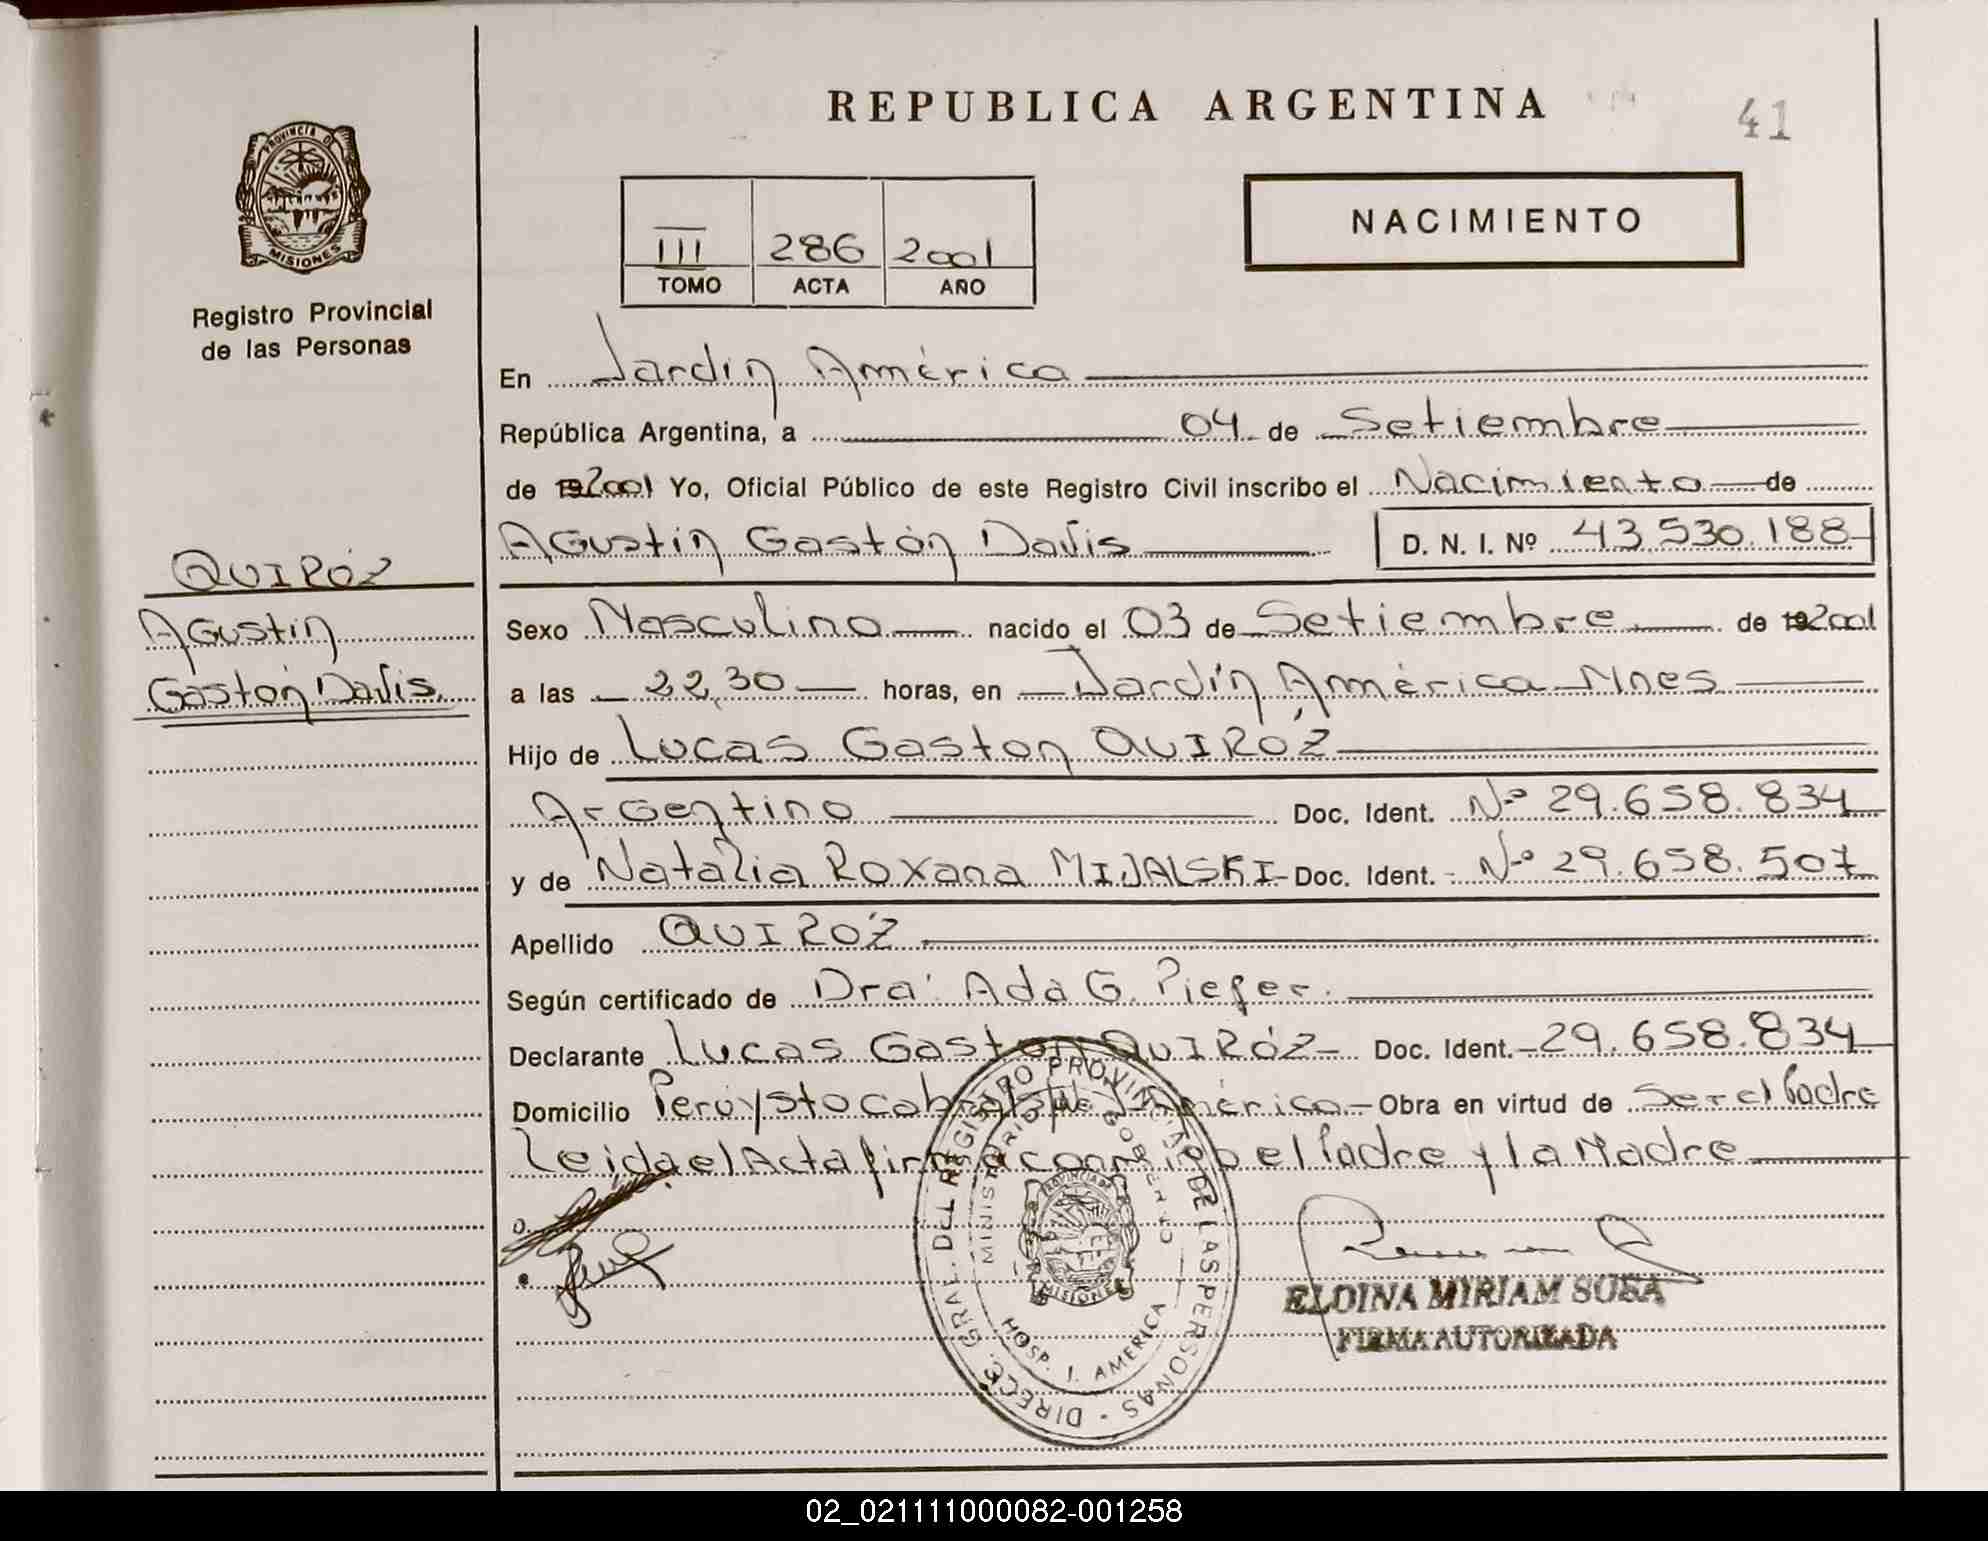 REPUBLICA ARGENTINA
41
PROVINCIA DE
MISIONES
Registro Provincial
de las Personas
III 286 2001
TOMO ACTA AÑO
NACIMIENTO
En Jardín América
República Argentina, a 04 de Setiembre
de 192001 Yo, Oficial Público de este Registro Civil inscribo el Nacimiento de
Agustín Gastón Davis D. N. I. Nº 43.530.188
QUIRÓZ
Agustín
Gastón Davis.
Sexo Masculino nacido el 03 de Setiembre de 192001
a las 22,30 horas, en Jardín América Mnes
Hijo de Lucas Gaston QUIRÓZ
Argentino Doc. Ident. Nº 29.658.834
y de Natalia Roxana MIJALSKI Doc. Ident. Nº 29.658.507
Apellido QUIRÓZ
Según certificado de Dra. Ada G. Piefer.
Declarante Lucas Gaston QUIRÓZ Doc. Ident. 29.658.834
Domicilio Perú y Sto Cabral América Obra en virtud de Ser el Padre
Leida el Acta firma conmigo el Padre y la Madre
DIRECC. GRAL. DEL REGISTRO PROVINCIAL DE LAS PERSONAS
MINISTERIO DE GOBIERNO
PROVINCIA DE
MISIONES
HOSP. J. AMERICA
ELOINA MIRIAM SOSA
FIRMA AUTORIZADA
02_021111000082-001258